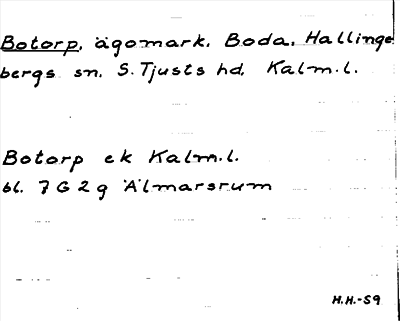 Botorp, ägomark. Boda. Hallinge
bergs sn. S. Tjusts hd. Kalm.l.
Botorp ek Kalm.l.
bl. 7 G 2 g Älmarsrum
H.H.-59